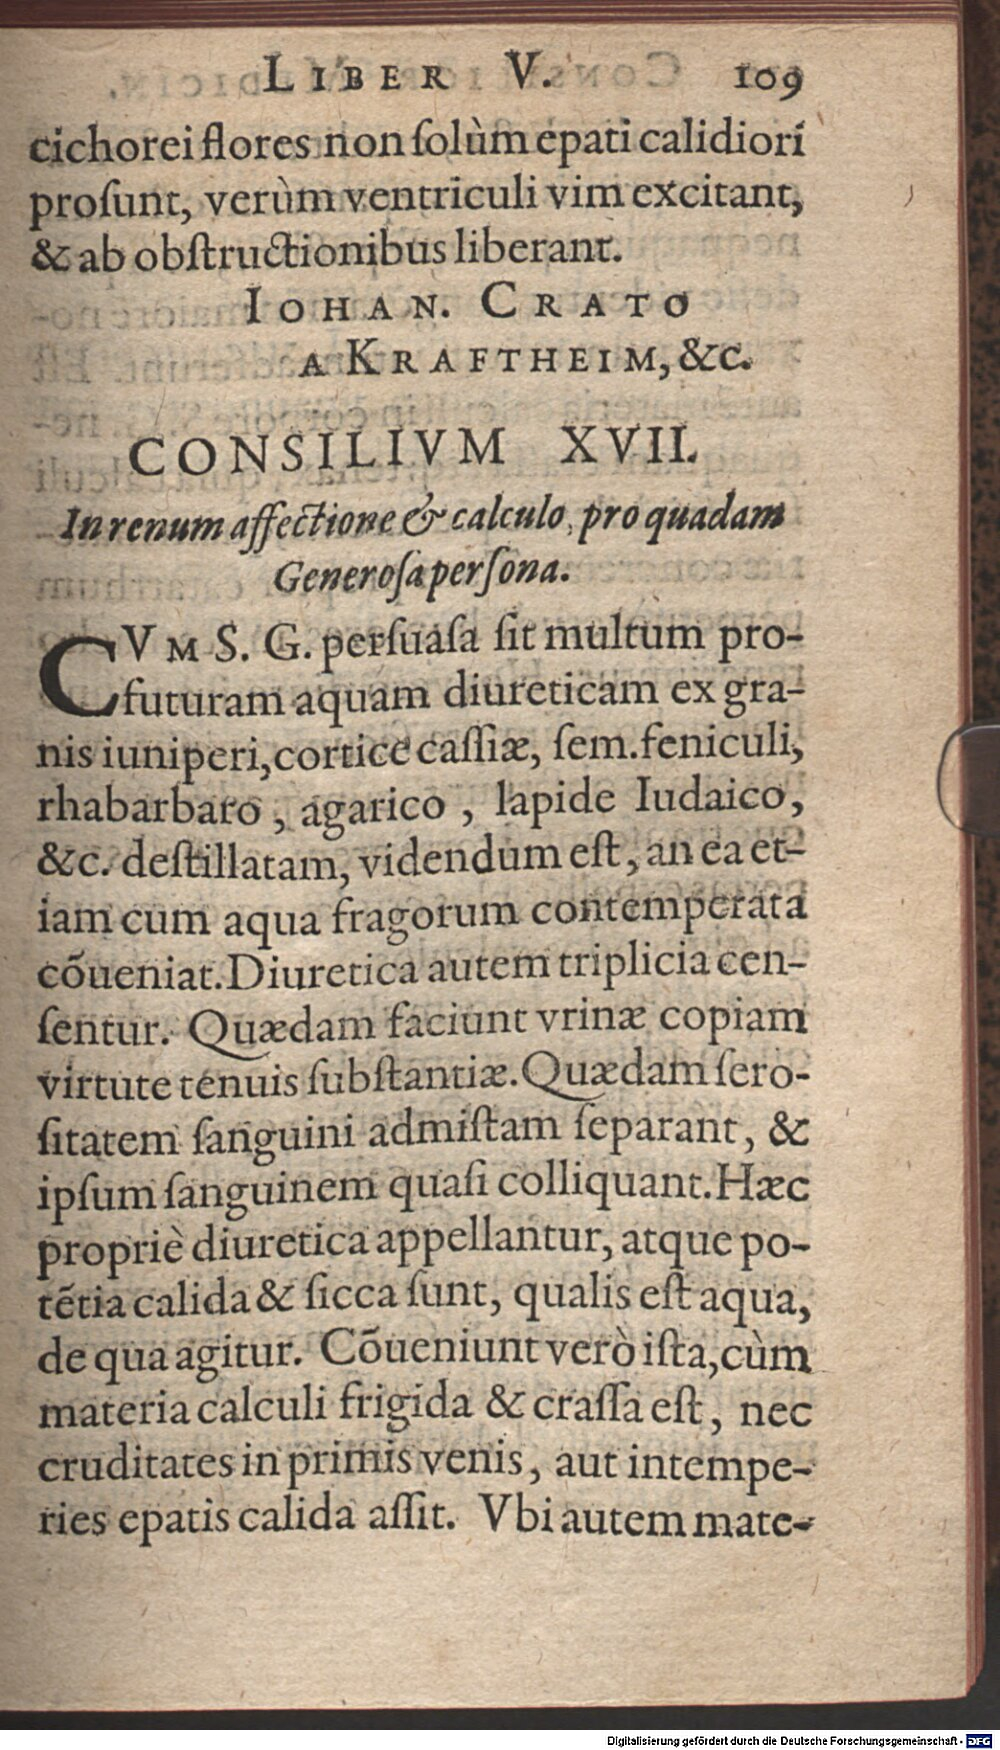 LIBER V. 109
cichorei flores non ſolùm epati calidiori
proſunt, verùm ventriculi vim excitant,
& ab obſtructionibus liberant.
IOHAN. CRATO
A KRAFTHEIM, &c.
CONSILIVM XVII.
In renum affectione & calculo, pro quadam
Generoſa perſona.
CVM S. G. perſuaſa ſit multum pro-
futuram aquam diureticam ex gra-
nis iuniperi, cortice caſſiæ, ſem. feniculi,
rhabarbaro, agarico, lapide Iudaico,
&c. deſtillatam, videndum eſt, an ea et-
iam cum aqua fragorum contemperata
cõueniat. Diuretica autem triplicia cen-
ſentur. Quædam faciunt vrinæ copiam
virtute tenuis ſubſtantiæ. Quædam ſero-
ſitatem ſanguini admiſtam ſeparant, &
ipſum ſanguinem quaſi colliquant. Hæc
propriè diuretica appellantur, atque po-
tẽtia calida & ſicca ſunt, qualis eſt aqua,
de qua agitur. Cõueniunt verò iſta, cùm
materia calculi frigida & craſſa eſt, nec
cruditates in primis venis, aut intempe-
ries epatis calida aſſit. Vbi autem mate-
Digitalisierung gefördert durch die Deutsche Forschungsgemeinschaft - DFG